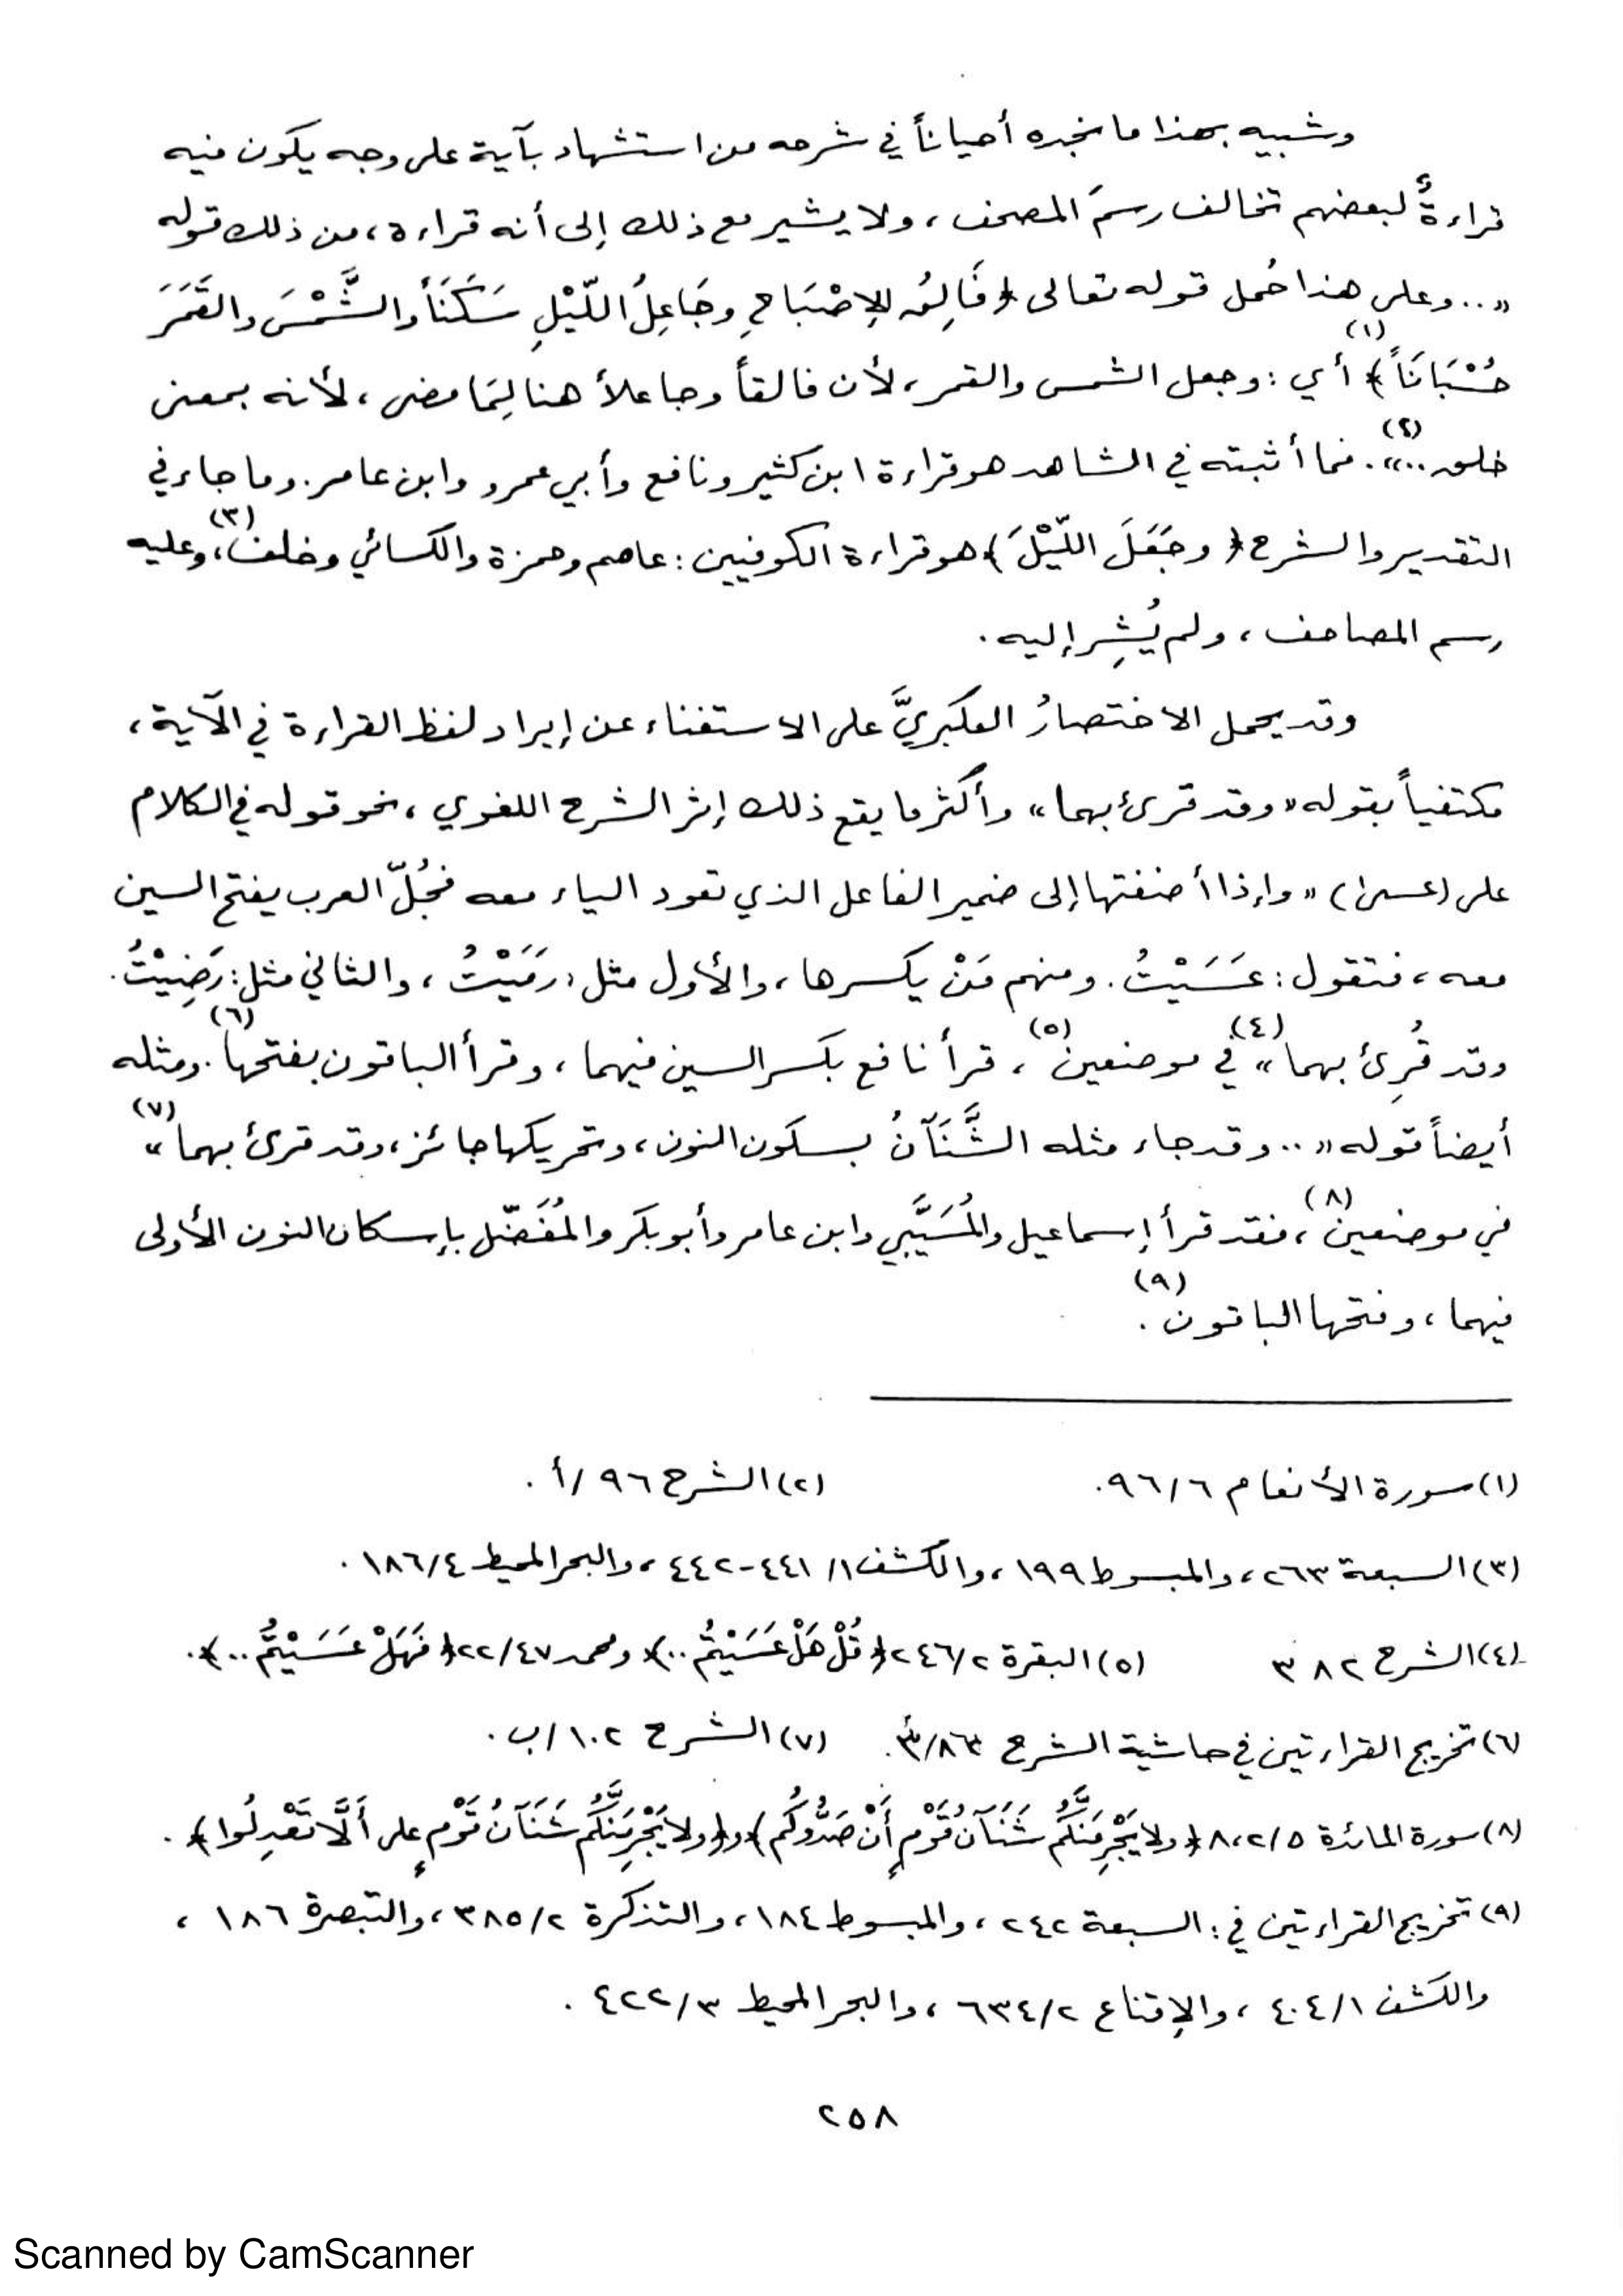 وشبيه بهذا ما نجده أحياناً في شرحه من استشهاد بآية على وجه يكون فيه
قراءةٌ لبعضهم تخالف رسمَ المصحف ، ولا يشير مع ذلك إلى أنه قراءة ، من ذلك قوله
« . . وعلى هذا حُمل قوله تعالى ﴿ فَالِقُ الإِصْبَاحِ وجَاعِلُ اللّيْلِ سَكَنَاً والشَّمْسَ والقَمَرَ
حُسْبَانَاً ﴾ (١) أي : وجعل الشمس والقمر ، لأن فالقاً وجاعلاً هنا لِمَا مضى ، لأنه بمعنى
خلق . . » (٢) . فما أثبته في الشاهد هو قراءة ابن كثير ونافع وأبي عمرو وابن عامر . وما جاء في
التقدير والشرح ﴿ وجَعَلَ اللّيْلَ ﴾ هو قراءة الكوفيين : عاصم وحمزة والكسائي وخلف (٣) ، وعليه
رسم المصاحف ، ولم يُشِر إليه .
وقد يحمل الاختصارُ العكبريَّ على الاستغناء عن إيراد لفظ القراءة في الآية ،
مكتفياً بقوله « وقد قرئ بهما » وأكثر ما يقع ذلك إثر الشرح اللغوي ، نحو قوله في الكلام
على (عسى) « وإذا أضفتها إلى ضمير الفاعل الذي تعود الياء معه فجُلّ العرب يفتح السين
معه ، فتقول : عَسَيْتُ . ومنهم مَنْ يكسرها ، والأول مثل : رَمَيْتُ ، والثاني مثل : رَضِيْتُ .
وقد قُرِئ بهما » (٤) في موضعين (٥) ، قرأ نافع بكسر السين فيهما ، وقرأ الباقون بفتحها (٦) . ومثله
أيضاً قوله « . . وقد جاء مثله الشَّنَآنُ بسكون النون ، وتحريكها جائز ، وقد قرئ بهما » (٧)
في موضعين (٨) ، فقد قرأ إسماعيل والمُسَيَّبي وابن عامر وأبو بكر والمُفَضّل بإسكان النون الأولى
فيهما ، وفتحها الباقون (٩) .
(١) سورة الأنعام ٩٦/٦ .
(٢) الشرح ٩٦ /أ .
(٣) السبعة ٢٦٣ ، والمبسوط ١٩٩ ، والكشف ١/ ٤٤١-٤٤٢ ، والبحر المحيط ١٨٦/٤ .
(٤) الشرح ٣٨٢
(٥) البقرة ٢٤٦/٢ ﴿ قُلْ هَلْ عَسَيْتُم . . ﴾ ومحمد ٢٢/٤٧ ﴿ فَهَلْ عَسَيْتُم . . ﴾ .
(٦) تخريج القراءتين في حاشية الشرح ٨٣/أ .
(٧) الشرح ١٠٢ /ب .
(٨) سورة المائدة ٨،٢/٥ ﴿ ولا يَجْرِمَنَّكُم شَنَآنُ قَوْمٍ أَنْ صَدُّوكُم ﴾ و ﴿ ولا يَجْرِمَنَّكُم شَنَآنُ قَوْمٍ على أَلَّا تَعْدِلُوا ﴾ .
(٩) تخريج القراءتين في : السبعة ٢٤٢ ، والمبسوط ١٨٤ ، والتذكرة ٣٨٥/٢ ، والتبصرة ١٨٦ ،
والكشف ٤٠٤/١ ، والإقناع ٦٣٤/٢ ، والبحر المحيط ٤٢٢/٣ .
٢٥٨
Scanned by CamScanner